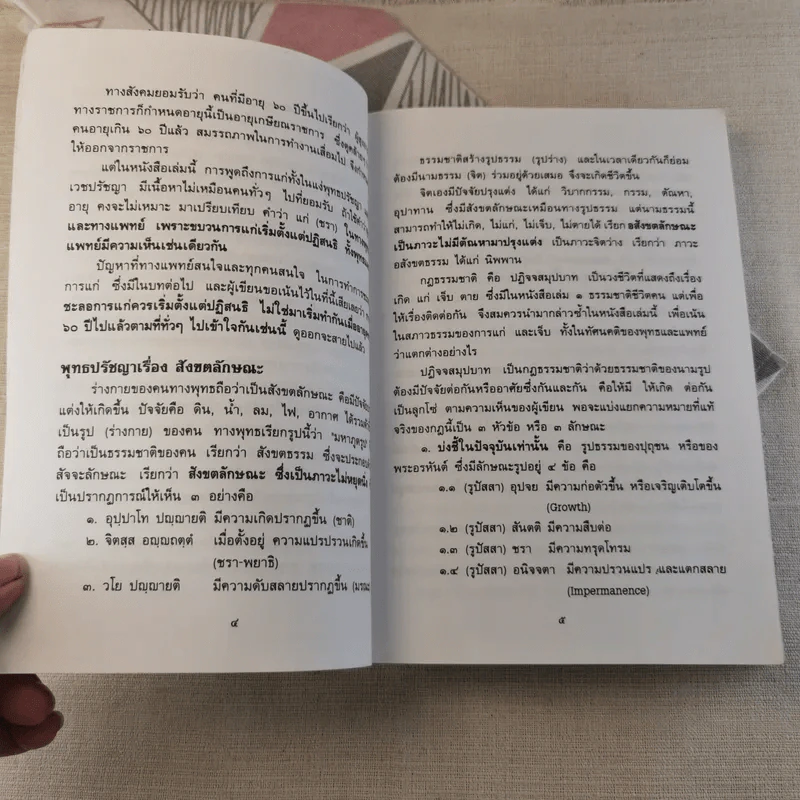 ทางสังคมยอมรับว่า คนที่มีอายุ ๖๐ ปีขึ้นไปเรียกว่า
ทางราชการก็กำหนดอายุนี้เป็นอายุเกษียณราชการ ซึ่ง
คนอายุเกิน ๖๐ ปีแล้ว สมรรถภาพในการทำงานเสื่อมไป
ให้ออกจากราชการ
แต่ในหนังสือเล่มนี้ การพูดถึงการแก่ทั้งในแง่พุทธปรัชญา
เวชปรัชญา มีเนื้อหาไม่เหมือนคนทั่วๆ ไปที่ยอมรับ ถ้าใช้คำว่า
อายุ คงจะไม่เหมาะ มาเปรียบเทียบ คำว่า แก่ (ชรา)
และทางแพทย์ เพราะขบวนการแก่เริ่มตั้งแต่ปฏิสนธิ
แพทย์มีความเห็นเช่นเดียวกัน
ปัญหาที่ทางแพทย์สนใจและทุกคนสนใจ ในการทำการ
การแก่ ซึ่งมีในบทต่อไป และผู้เขียนขอเน้นไว้ในที่นี้เสียเลยว่า
ชะลอการแก่ควรเริ่มตั้งแต่ปฏิสนธิ ไม่ใช่มาเริ่มทำกันเมื่ออายุ
๖๐ ปีไปแล้วตามที่ทั่วๆ ไปเข้าใจกันเช่นนี้ ดูออกจะสายไปแล้ว
พุทธปรัชญาเรื่อง สังขตลักษณะ
ร่างกายของคนทางพุทธถือว่าเป็นสังขตลักษณะ คือมีปัจจัย
แต่งให้เกิดขึ้น ปัจจัยคือ ดิน, น้ำ, ลม, ไฟ, อากาศ ได้รวมตัว
เป็นรูป (ร่างกาย) ของคน ทางพุทธเรียกรูปนี้ว่า "มหาภูตรูป"
ถือว่าเป็นธรรมชาติของคน เรียกว่า สังขตธรรม ซึ่งจะประกอบ
สัจจะลักษณะ เรียกว่า สังขตลักษณะ ซึ่งเป็นภาวะไม่หยุดนิ่ง
เป็นปรากฏการณ์ให้เห็น ๓ อย่างคือ
๑. อุปฺปาโท ปญฺญายติ มีความเกิดปรากฏขึ้น (ชาติ)
๒. จิตสฺส อญฺญถตฺตํ เมื่อตั้งอยู่ ความแปรปรวนเกิดขึ้น
(ชรา-พยาธิ)
๓. วโย ปญฺญายติ มีความดับสลายปรากฏขึ้น (มรณะ
๔
ธรรมชาติสร้างรูปธรรม (รูปร่าง) และในเวลาเดียวกันก็ย่อม
ต้องมีนามธรรม (จิต) ร่วมอยู่ด้วยเสมอ จึงจะเกิดชีวิตขึ้น
จิตเองมีปัจจัยปรุงแต่ง ได้แก่ วิบากกรรม, กรรม, ตัณหา,
อุปาทาน ซึ่งมีสังขตลักษณะเหมือนทางรูปธรรม แต่นามธรรมนี้
สามารถทำให้ไม่เกิด, ไม่แก่, ไม่เจ็บ, ไม่ตายได้ เรียก อสังขตลักษณะ
เป็นภาวะไม่มีตัณหามาปรุงแต่ง เป็นภาวะจิตว่าง เรียกว่า ภาวะ
อสังขตธรรม ได้แก่ นิพพาน
กฎธรรมชาติ คือ ปฏิจจสมุปบาท เป็นวงชีวิตที่แสดงถึงเรื่อง
เกิด แก่ เจ็บ ตาย ซึ่งมีในหนังสือเล่ม ๑ ธรรมชาติชีวิตคน แต่เพื่อ
ให้เรื่องติดต่อกัน จึงสมควรนำมากล่าวซ้ำในหนังสือเล่มนี้ เพื่อเน้น
ในสภาวธรรมของการแก่ และเจ็บ ทั้งในทัศนคติของพุทธและแพทย์
ว่าแตกต่างอย่างไร
ปฏิจจสมุปบาท เป็นกฎธรรมชาติว่าด้วยธรรมชาติของนามรูป
ต้องมีปัจจัยต่อกันหรืออาศัยซึ่งกันและกัน คือให้มี ให้เกิด ต่อกัน
เป็นลูกโซ่ ตามความเห็นของผู้เขียน พอจะแบ่งแยกความหมายที่แท้
จริงของกฎนี้เป็น ๓ หัวข้อ หรือ ๓ ลักษณะ
๑. บ่งชี้ในปัจจุบันเท่านั้น คือ รูปธรรมของปุถุชน หรือของ
พระอรหันต์ ซึ่งมีลักษณะรูปอยู่ ๔ ข้อ คือ
๑.๑ (รูปัสสา) อุปจย มีความก่อตัวขึ้น หรือเจริญเติบโตขึ้น
(Growth)
๑.๒ (รูปัสสา) สันตติ มีความสืบต่อ
๑.๓ (รูปัสสา) ชรา มีความทรุดโทรม
๑.๔ (รูปัสสา) อนิจจตา มีความปรวนแปร และแตกสลาย
(Impermanence)
๕